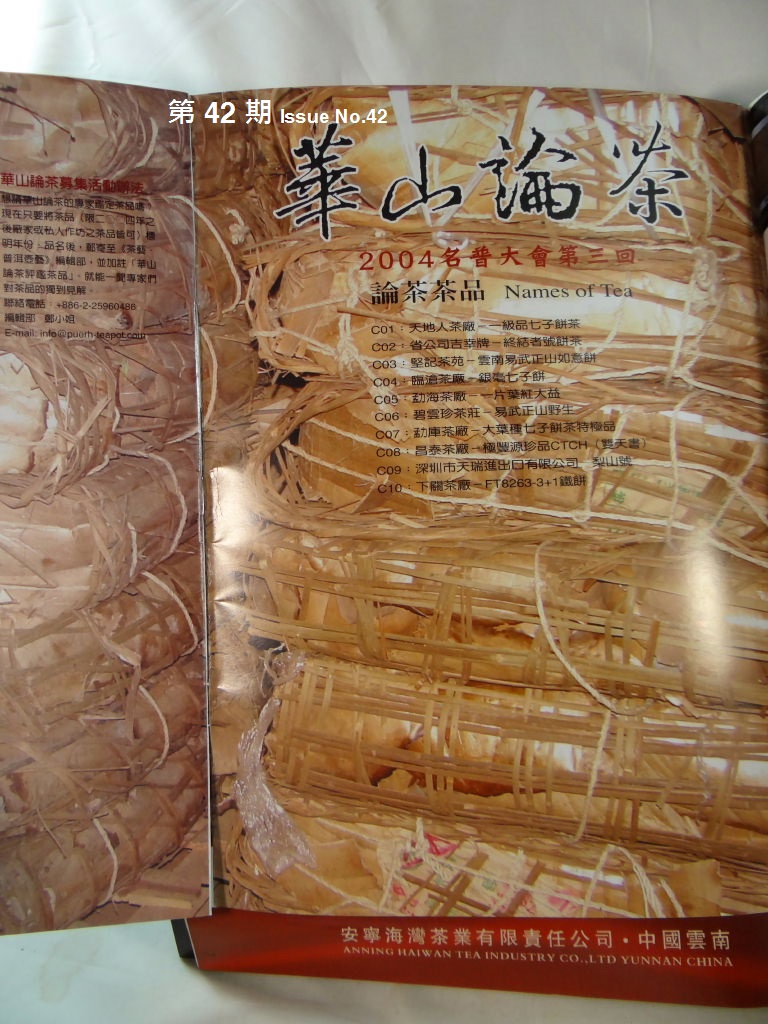 第 42 期 Issue No.42
華山論茶募集活動辦法
想請華山論茶的專家鑑定茶品嗎？
現在只要將茶品（限二○○四年之
後廠家或私人作坊之茶品皆可）標
明年份、品名後，郵寄至《茶藝‧
普洱壺藝》編輯部，並加註「華山
論茶評鑑茶品」，就能一覽專家們
對茶品的獨到見解。
聯絡電話：+886-2-25960486
編輯部　鄭小姐
E-mail: info@puerh-teapot.com
華山論茶
2004名普大會第三回
論茶茶品 Names of Tea
C01：天地人茶廠－一級品七子餅茶
C02：省公司吉幸牌－終結者號餅茶
C03：堅記茶苑－雲南易武正山如意餅
C04：臨滄茶廠－銀毫七子餅
C05：勐海茶廠－一片葉紅大益
C06：碧雲珍茶莊－易武正山野生
C07：勐庫茶廠－大葉種七子餅茶特極品
C08：昌泰茶廠－極豐源珍品CTCH（雙天書）
C09：深圳市天瑞進出口有限公司－梨山號
C10：下關茶廠－FT8263-3+1鐵餅
安寧海灣茶業有限責任公司‧中國雲南
ANNING HAIWAN TEA INDUSTRY CO.,LTD YUNNAN CHINA